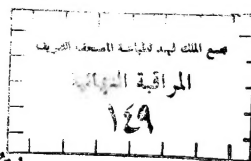 مجمع الملك فهد لطباعة المصحف الشريف
المراقبة النهائية
١٤٩